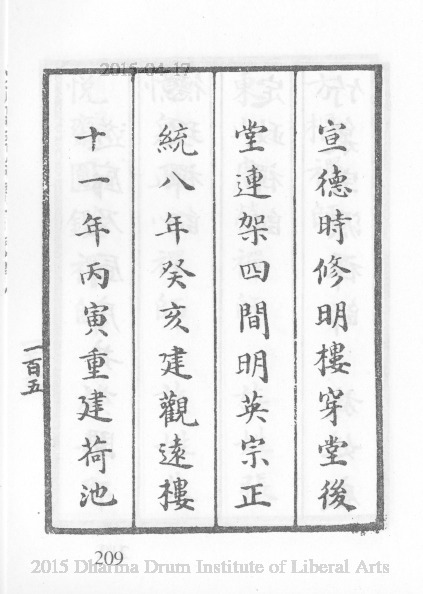 2015-04-17
宣德時修明樓穿堂後
堂連架四間明英宗正
統八年癸亥建觀遠樓
十一年丙寅重建荷池
一百五
209
2015 Dharma Drum Institute of Liberal Arts